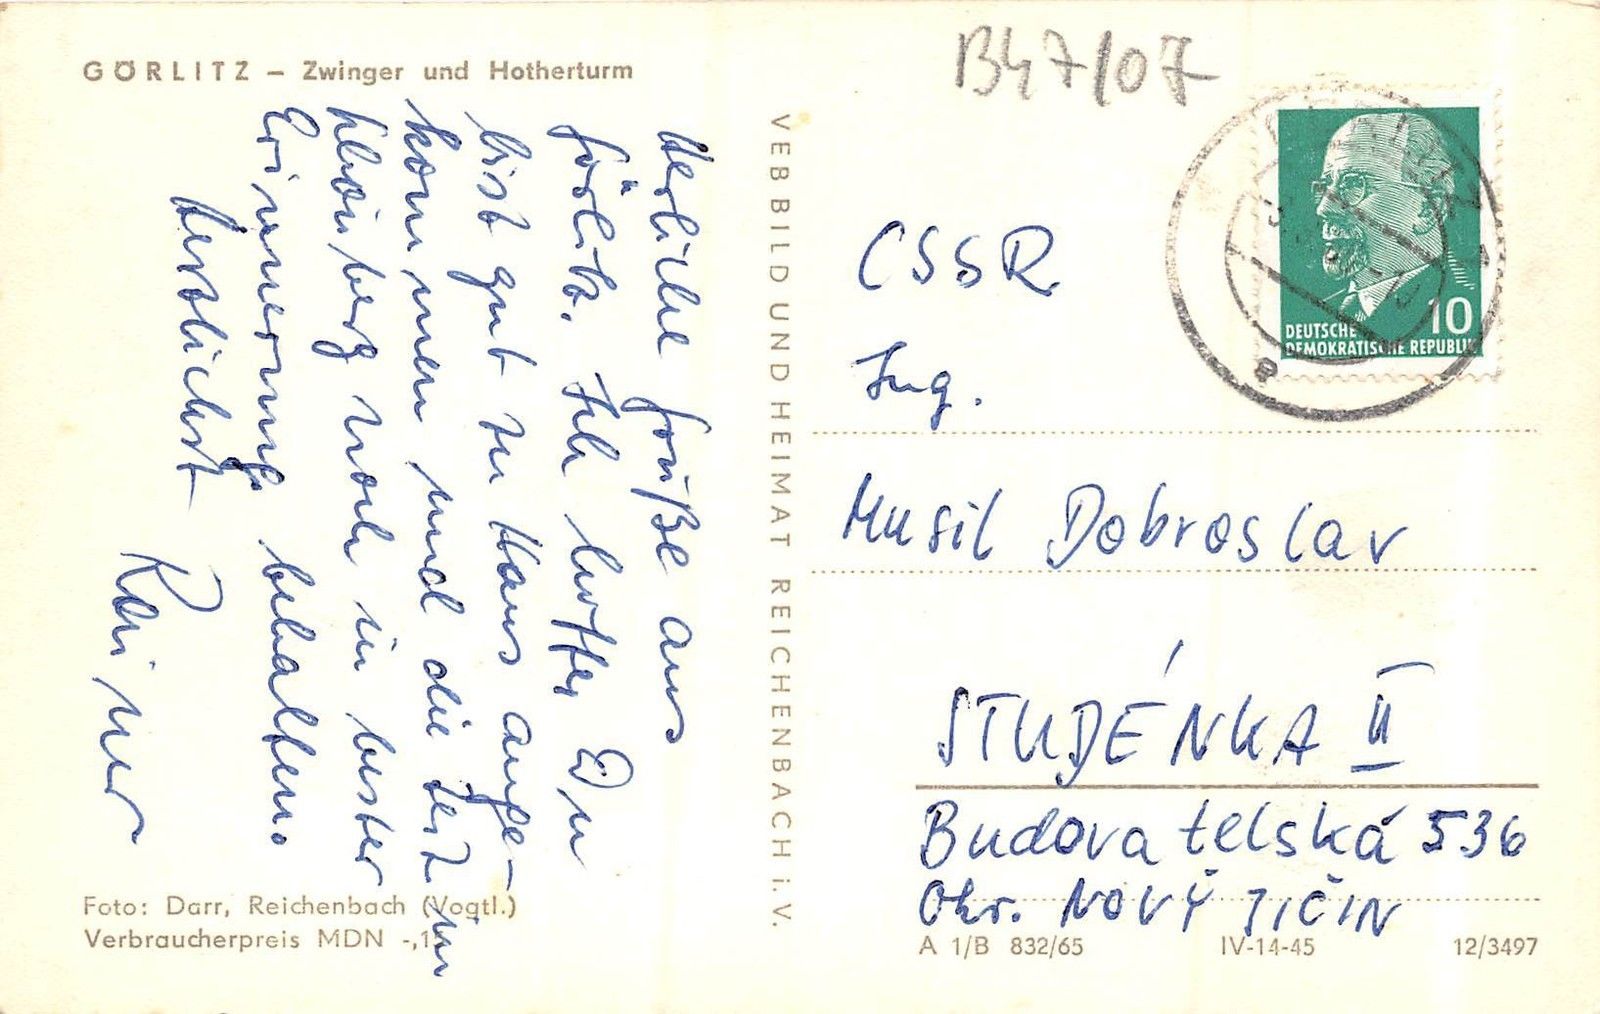 GÖRLITZ – Zwinger und Hotherturm
Herzliche Grüße aus
Görlitz. Ich hoffe, Du
bist gut zu Haus ange-
kommen und die Zeit in
noch in bester
Erinnerung behalten.
Herzlichst
Rainer
Foto: Darr, Reichenbach (Vogtl.)
Verbraucherpreis MDN -,1
VEB BILD UND HEIMAT REICHENBACH i. V.
B47/07
DEUTSCHE
DEMOKRATISCHE REPUBLIK
10
CSSR
Ing.
Musil Dobroslav
STUDÉNKA II
Budovatelská 536
Okr. NOVÝ JIČIN
A 1/B 832/65
IV-14-45
12/3497